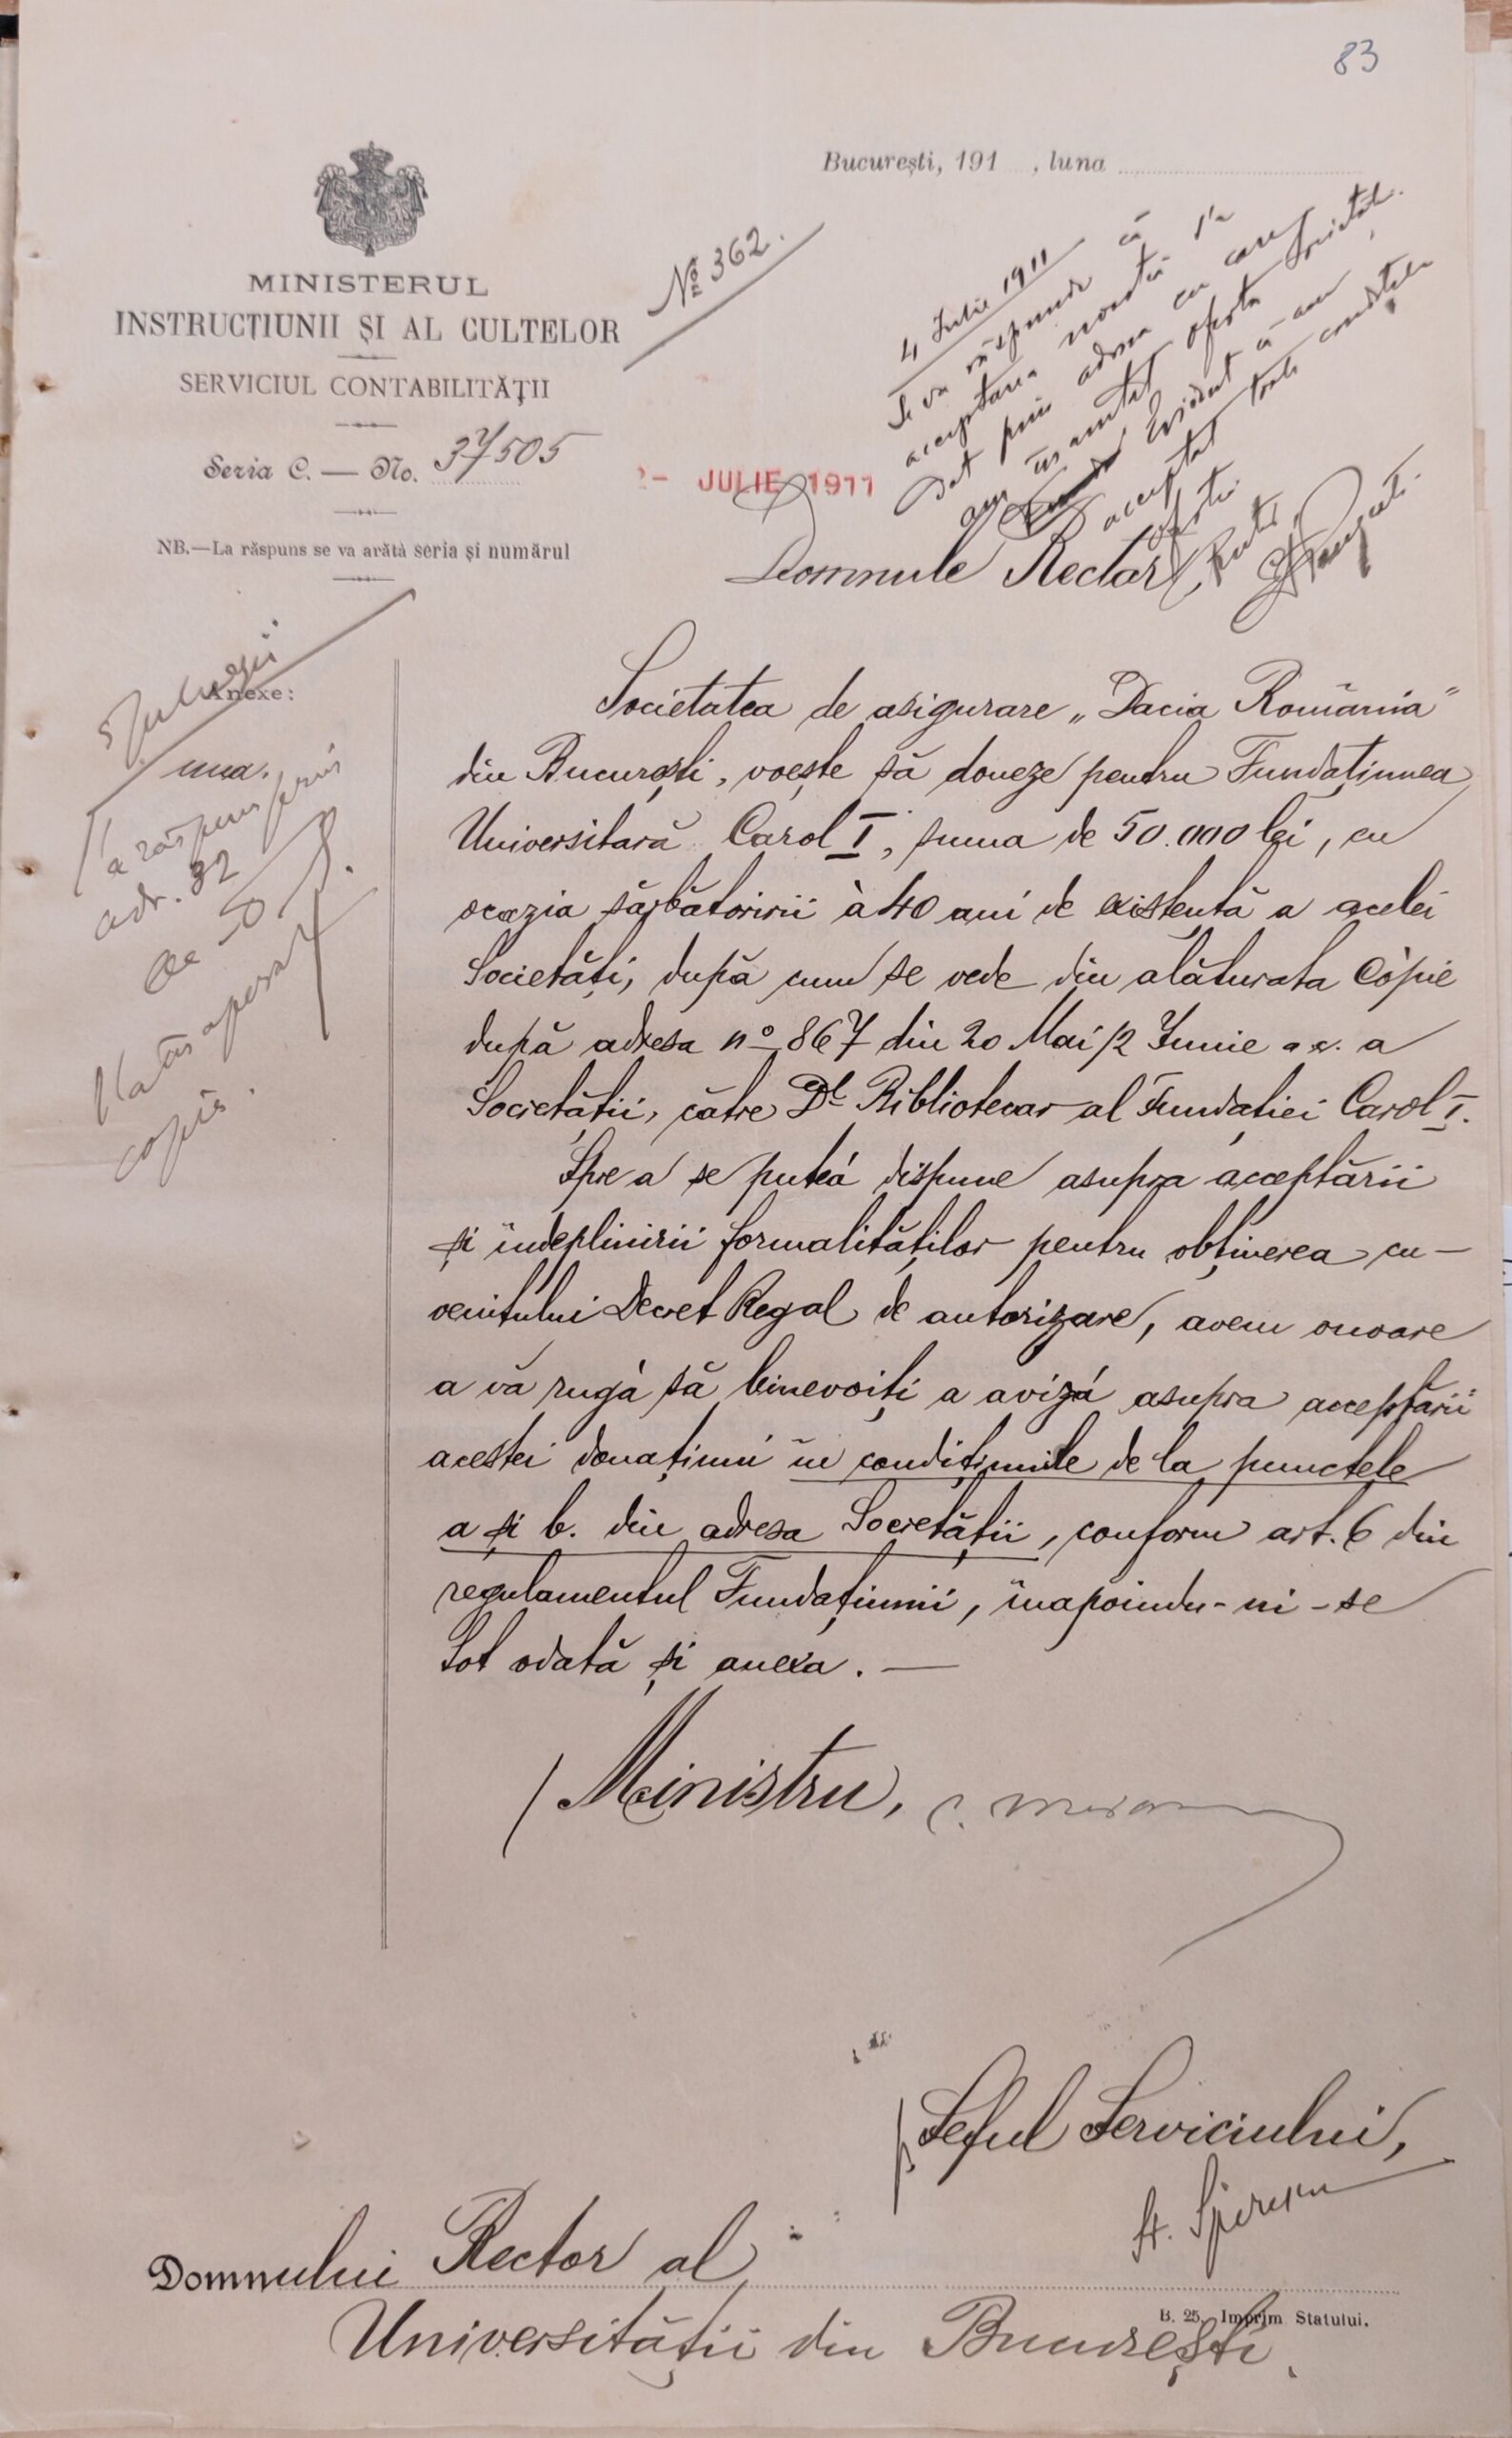 83
București, 191 , luna
MINISTERUL
INSTRUCȚIUNII ȘI AL CULTELOR
SERVICIUL CONTABILITĂȚII
Seria C. — No. 37505
NB.—La răspuns se va arătà seria și numărul
№ 362.
2 - JULIE 1911
4 Iulie 1911
Se va răspunde că
acceptarea noastră s'a
dat prin adresa cu care
am înaintat oferta Societăț.
Evident că am
acceptat toate condițiile
ofertei.
Rector,
Domnule Rector,
Anexe:
una.
5 Iulie
S'a răspuns prin
adr. 32
de
copie.
Societatea de asigurare „Dacia România"
din București, voește să doneze pentru Fundațiunea
Universitară Carol I, suma de 50.000 lei, cu
ocazia sărbătoririi à 40 ani de existență a acelei
Societăți, după cum se vede din alăturata Copie
după adresa no 867 din 20 Mai/2 Iunie a.c. a
Societății, către Dl Bibliotecar al Fundației Carol I.
Spre a se puteá dispune asupra acceptării
și îndeplinirii formalităților pentru obținerea cu-
venitului Decret Regal de autorizare, avem onoare
a vă rugà să binevoiți a avizá asupra acceptării
acestei donațiuni în condițiunile de la punctele
a și b. din adresa Societății, conform art. 6 din
regulamentul Fundațiunii, înapoindu-ni-se
tot odată și anexa. —
/ Ministru,
p. Șeful Serviciului,
Domnului Rector al
B. 25. Imprim Statului.
Universității din București.